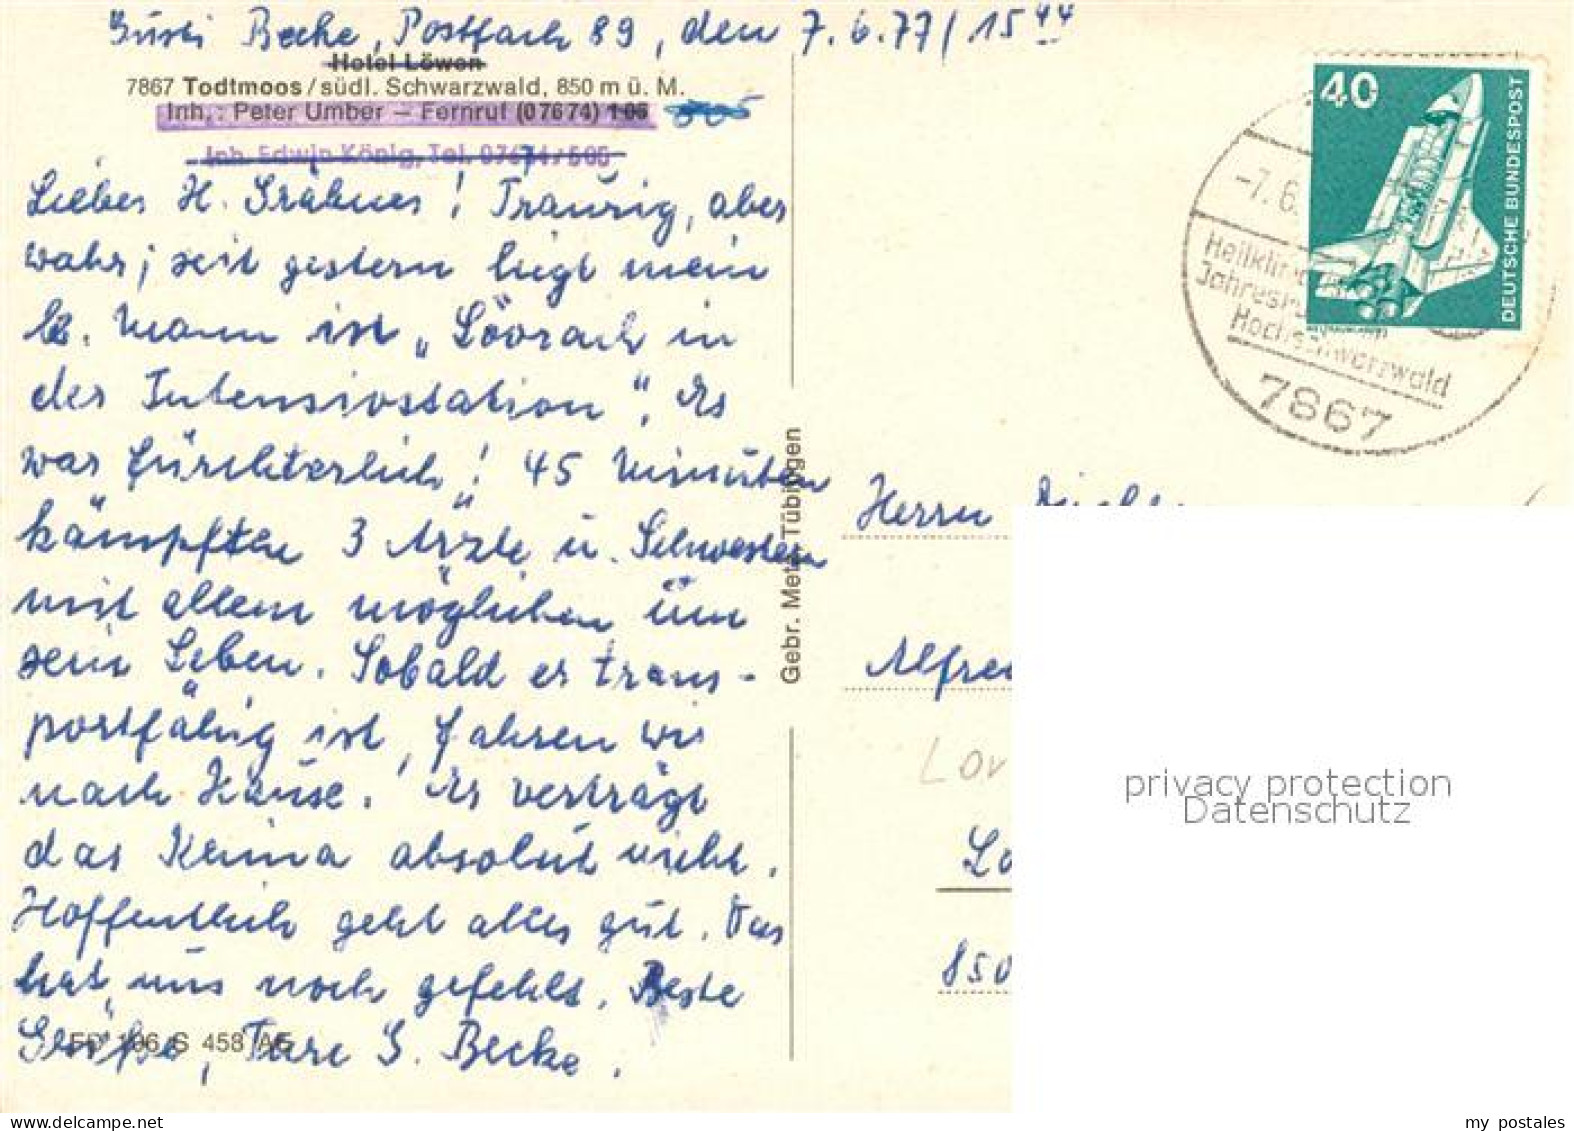 Gusti Becke, Postfach 89, den 7.6.77/15⁴⁴
Hotel Löwen
7867 Todtmoos/südl. Schwarzwald, 850 m ü. M.
Inh.: Peter Umber – Fernruf (07674) 105 505
Inh. Edwin König, Tel. 07674/505
Lieber H. Gräbner! Traurig, aber
wahr; seit gestern liegt mein
lb. Mann ist "Lövrach in
der Intensivstation". Es
war fürchterlich! 45 Minuten
kämpften 3 Ärzte u. Schwestern
mit allem möglichen um
sein Leben. Sobald er trans-
portfähig ist, fahren wir
nach Hause. Er verträgt
das Keima absolut nicht.
Hoffentlich geht alles gut. Das
hat uns noch gefehlt. Beste
Grüße, Ihre G. Becke.
106 S 458 AE
Gebr. Metz, Tübingen
40
DEUTSCHE BUNDESPOST
-7.6.
Heilklim
Jahres
Hochschwarzwald
7867
Herrn
Alfred
Lor
Lo
850
privacy protection
Datenschutz
my postales